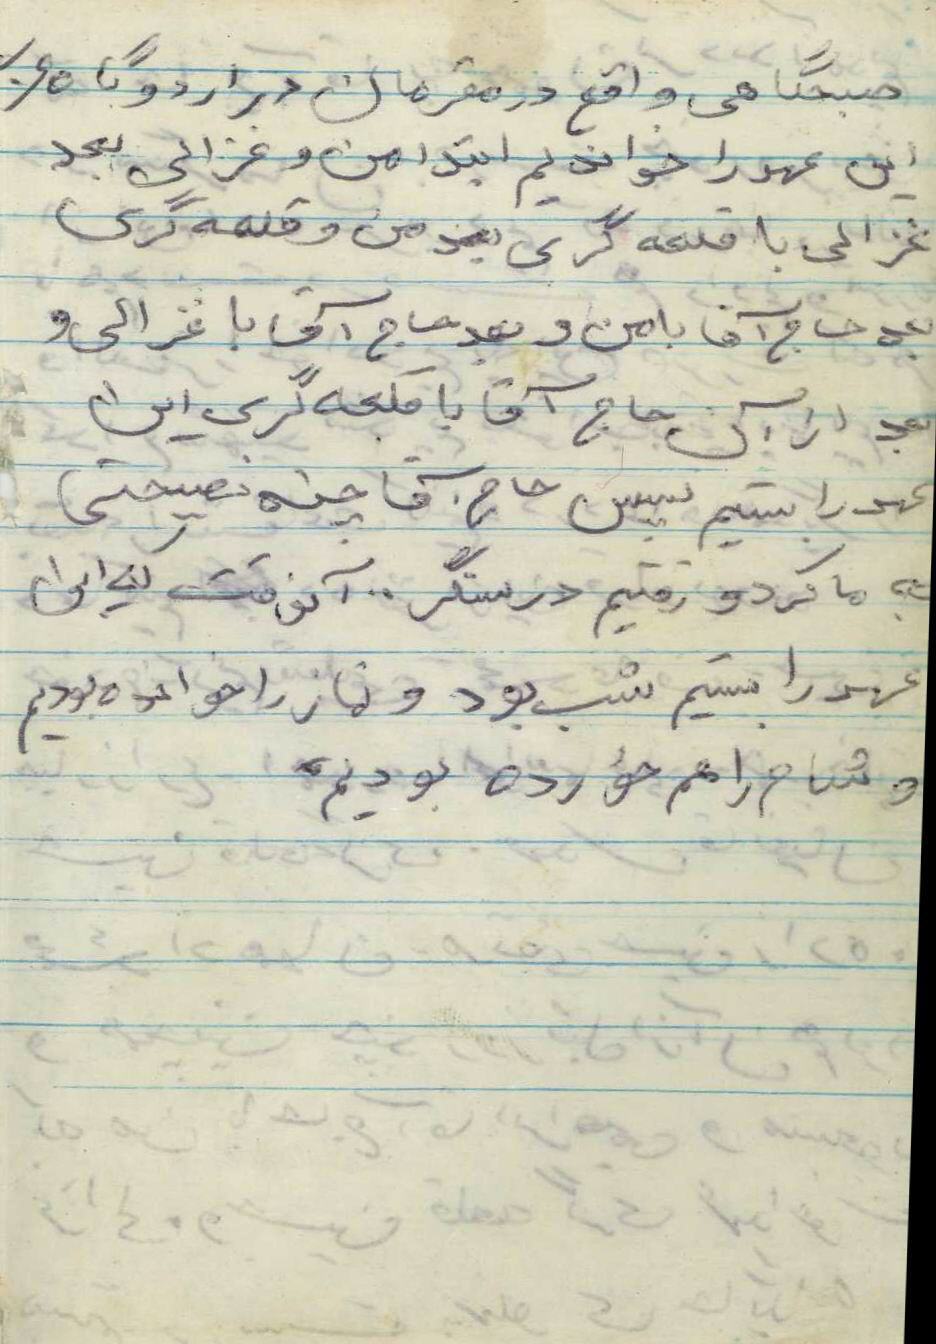 صبحگاهی واقع در مقرمان در اردوگاه
این عهد را خواندیم ابتدا من و غزالی بعد
غزالی با قلعه گری بعد من و قلعه گری
بعد حاج آقا با من و بعد حاج آقا با غزالی و
بعد از آن حاج آقا با قلعه گری این
عهد را بستیم سپس حاج آقا چند نصیحتی
به ما کرد و رفتیم در سنگر .. آنوقت که این
عهد را بستیم شب بود و نماز را خوانده بودیم
و شام را هم خورده بودیم